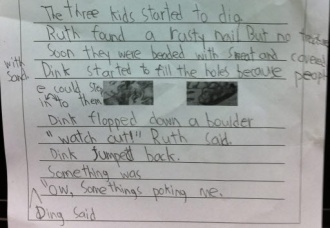 The three kids started to dig
Ruth found a rusty nail But no
Soon they were beaded with sweat and covered
with sand.
Dink started to fill the holes because people
could step
in to them
Dink flopped down a boulder
"watch out!" Ruth said.
Dink Jumped back.
Something was
"OW, Somethings poking me.
Ding Said